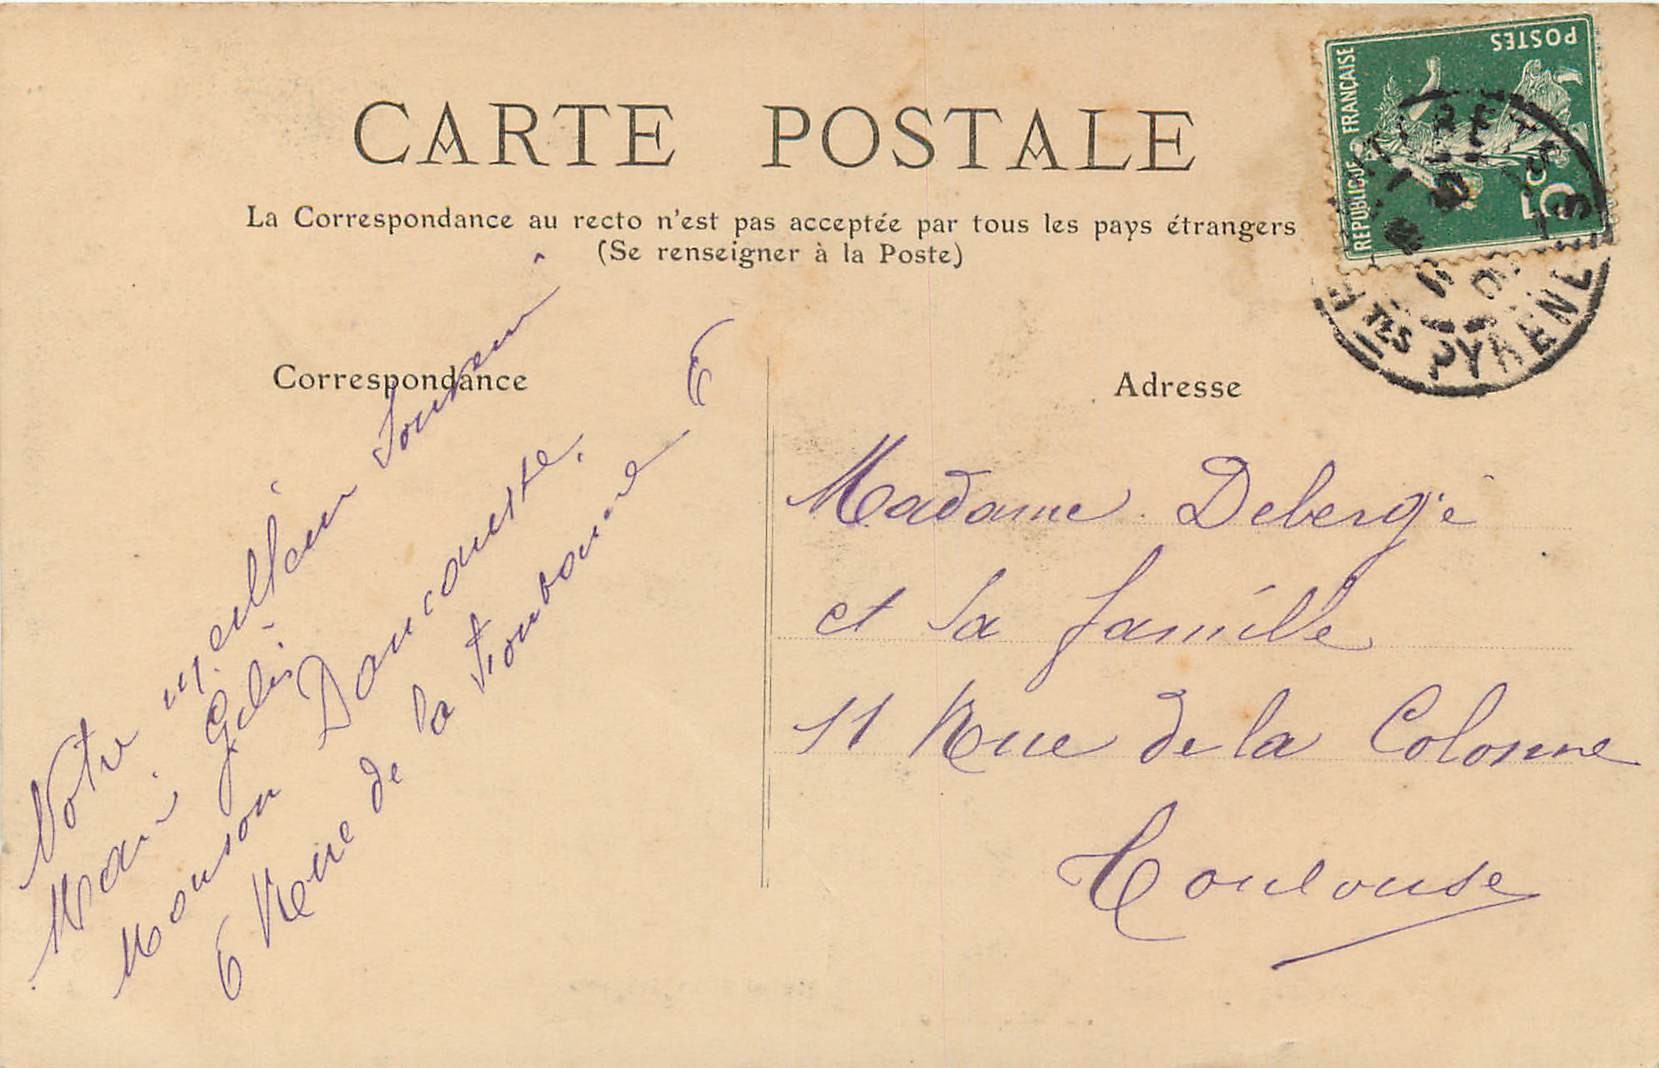 CARTE POSTALE
La Correspondance au recto n'est pas acceptée par tous les pays étrangers
(Se renseigner à la Poste)
Correspondance
Adresse
Notre meilleur Souvenir
Marie
Maison Dancausse
6 Rue de la 6
Madame Debergé
et Sa famille
11 Rue de la Colonne
Toulouse
REPUBLIQUE FRANÇAISE
POSTES
5
PYRENEES